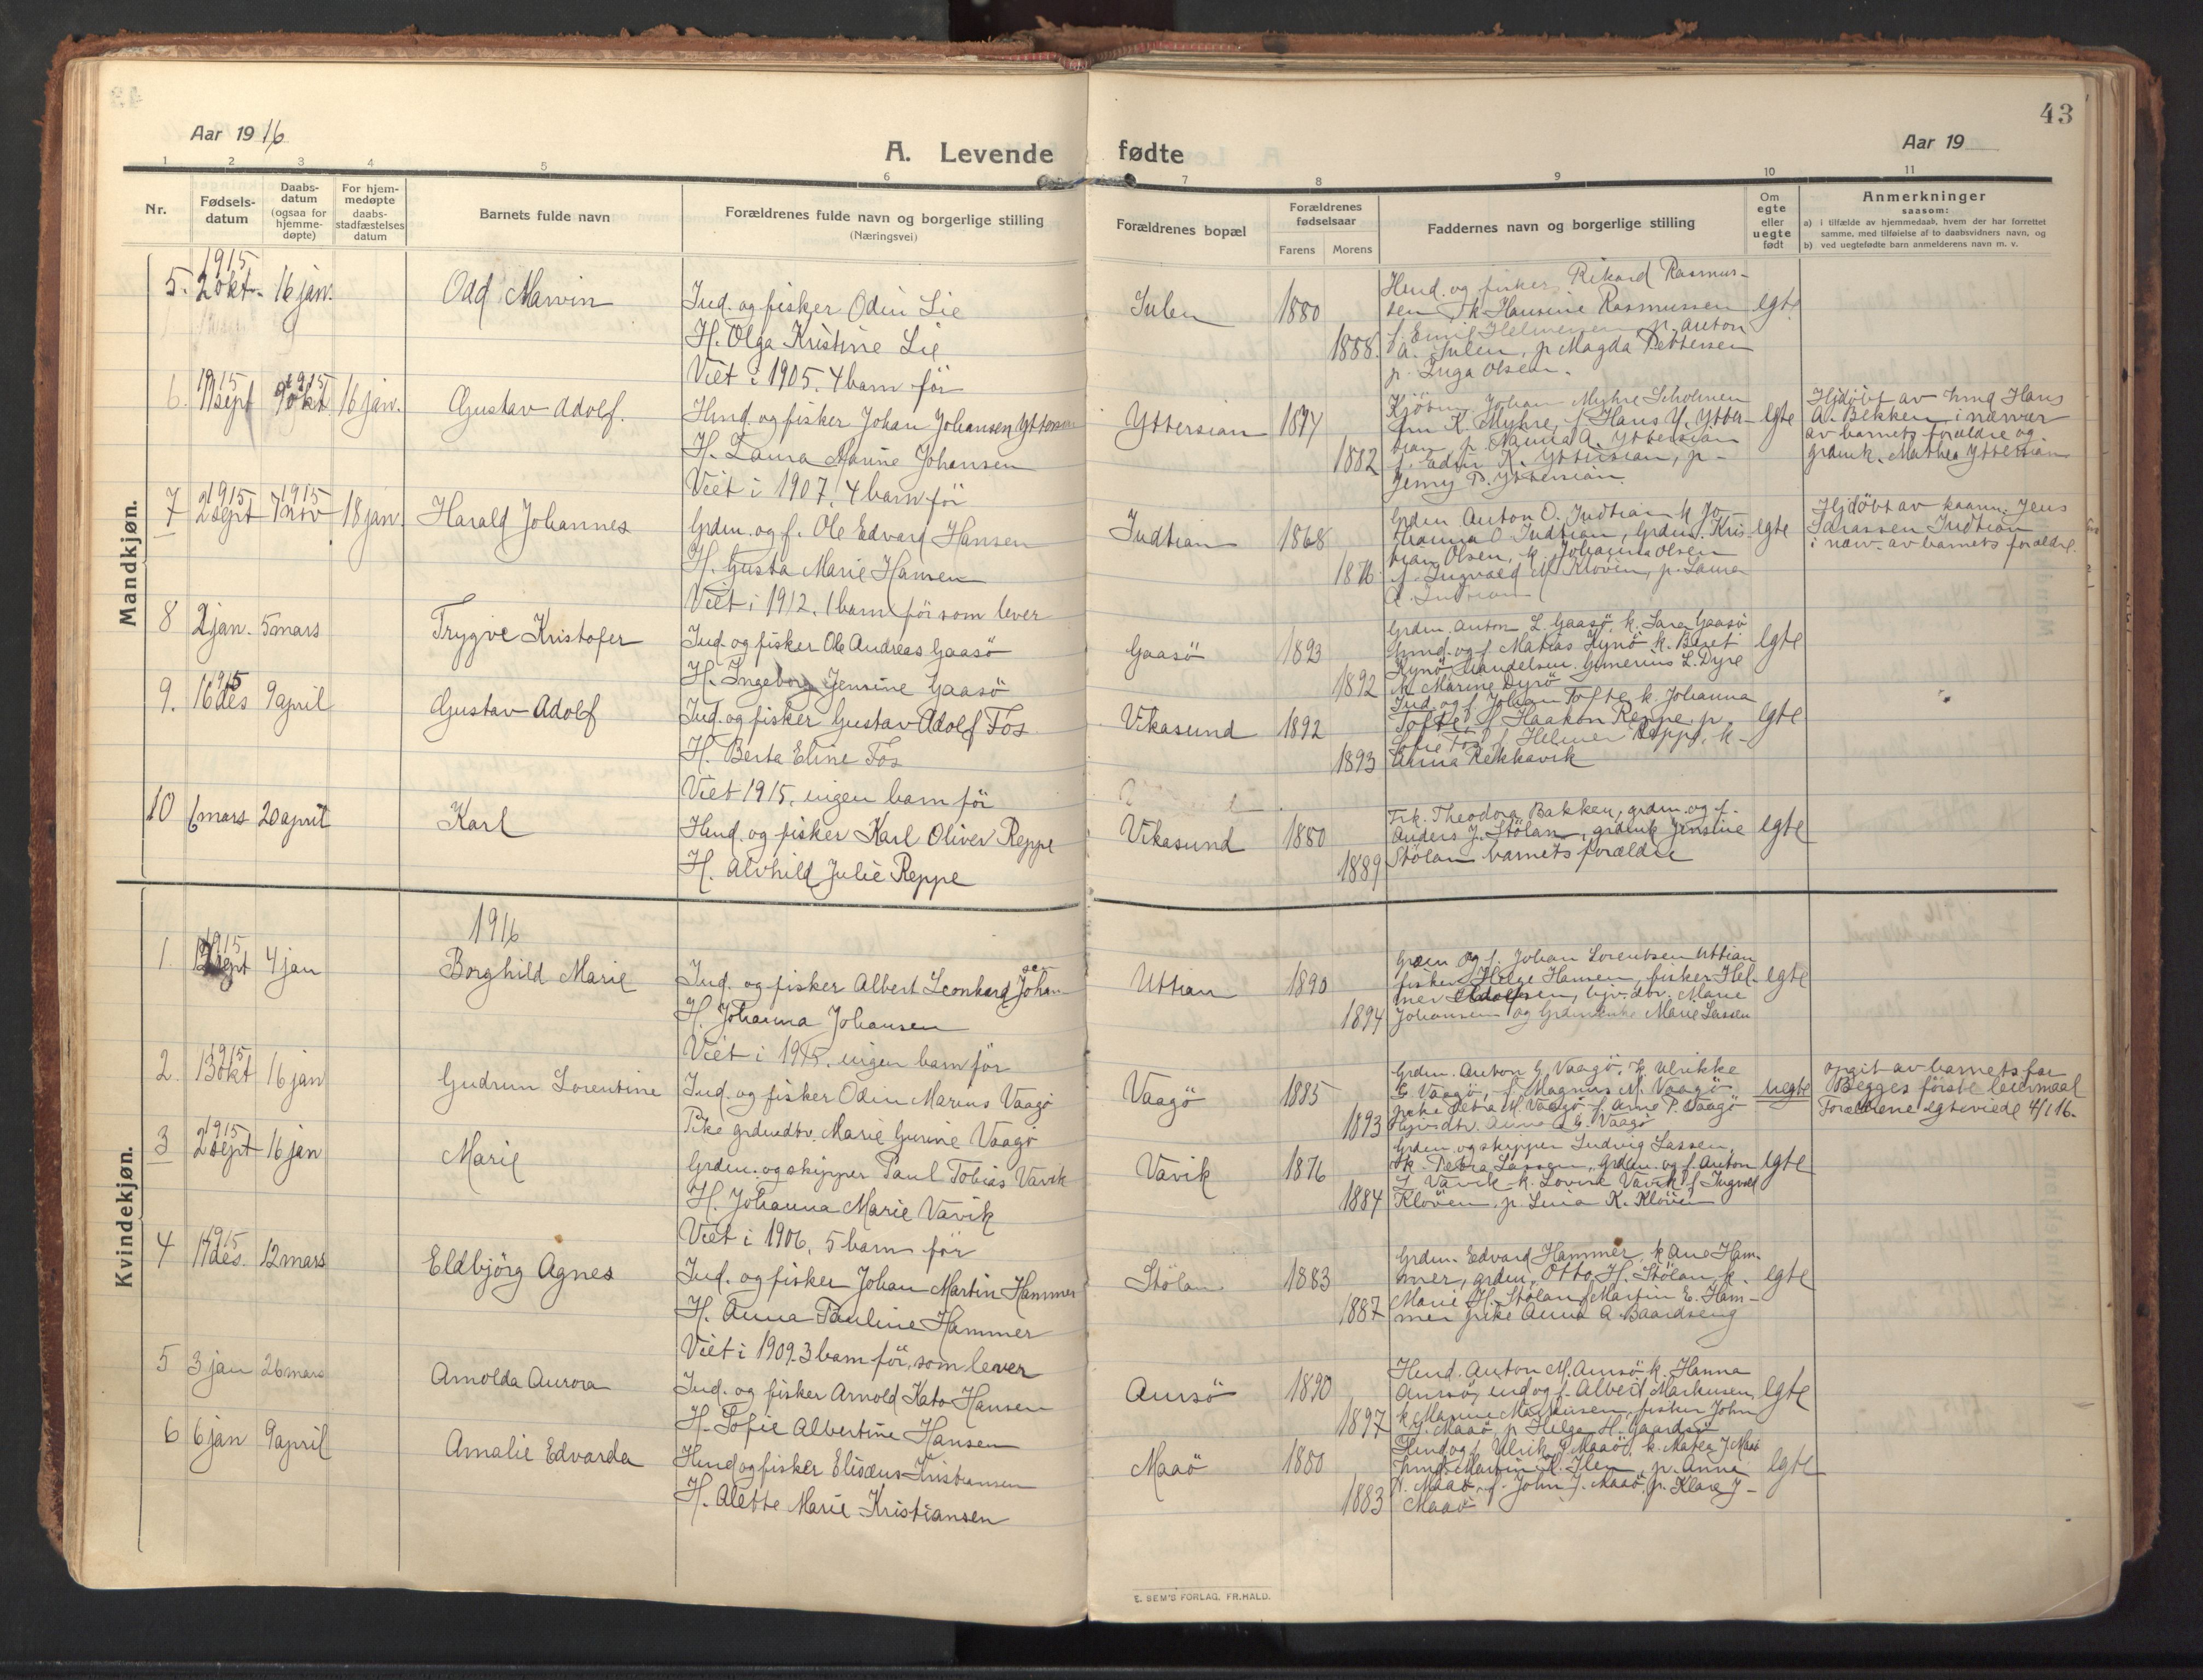 43
Aar 1916
A. Levende fødte
Aar 19
1 2 3 4 5 6 7 8 9 10 11
Nr.
Fødsels-
datum
Daabs-
datum
(ogsaa for
hjemme-
døpte)
For hjem-
medøpte
daabs-
stadfæstelses
datum
Barnets fulde navn
Forældrenes fulde navn og borgerlige stilling
(Næringsvei)
Forældrenes bopæl
Forældrenes
fødselsaar
Farens Morens
Faddernes navn og borgerlige stilling
Om
egte
eller
uegte
født
Anmerkninger
saasom:
a) i tilfælde av hjemmedaab, hvem der har forrettet
samme, med tilføielse af to daabsvidners navn, og
b) ved uegtefødte barn anmelderens navn m. v.
Mandkjøn.
1915
5. 2 okt. 16 jan.
Odd Marvin
Ind. og fisker Odin Lie
H. Olga Kristine Lie
Viet i 1905. 4 barn før
Sulen
1880
1888.
Hmd. og fisker Rikard Rasmus-
sen k. Hansine Rasmussen
A. Sulen, p. Magda Pettersen
p. Inga Olsen.
egte
1915 1915
6. 11 sept 9 okt 16 jan.
Gustav Adolf.
Hmd. og fisker Johan Johansen Yttersian
H. Laura Marine Johansen
Viet i 1907. 4 barn før
Yttersian
1874
1882
Johan Myhre
K. Myhre, f. Hans Y. Ytter-
sian p. Nanna A. Yttersian
f. Edin K. Yttersian, p-
Jenny P. Yttersian.
egte
Hjdöbt av hmd Hans
A. Bekken i nærvær
av barnets forældre og
grdmk. Mathea Yttersian
1915 1915
7 2 sept 7 nov 18 jan.
Harald Johannes
Grdm. og f. Ole Edvard Hansen
H. Gusta Marie Hansen
Viet i 1912. 1 barn før som lever
Indtian
1868
1876
Grdm Anton O. Indtian k Jo-
hanna O Indtian, Grdm. Kris-
tian Olsen, k. Johanna Olsen
f. Ingvald M. Kloven, p. Laura
A. Indtian
egte
Hjdöbt av kaarm. Jens
Larassen Indtian
i nærv. av barnets forældre.
8 2 jan. 5 mars
Trygve Kristofer
Ind. og fisker Ole Andreas Gaasö
H. Ingeborg Jensine Gaasö
Gaasö
1893
1892
Grdm. Anton L. Gaasö, k. Sara Gaasö
hmd. og f. Matias Kynö k. Beret
Kynö, Handelsm. Gunerius L. Dyrö
k. Marine Dyrö
egte
1915
9. 16 des 9 april
Gustav Adolf
Ind. og fisker Gustav Adolf Fos
H. Berta Eline Fos
Viet 1915, ingen barn før
Vikasund
1892
1893
Ind. og f. Johan Tofte k. Johanna
Tofte, f. Haakon Reppe, p.
Sofie Fos, f. Helmer Reppe, k-
Anna Rekkavik
egte
10 6 mars 20 april
Karl
Hmd. og fisker Karl Oliver Reppe
H. Alvhild Julie Reppe
Vikasund
1880
1889
Frk. Theodora Bakken, grdm. og f.
Anders J. Stölan, grdmk Jensine
Stölan barnets forældre
egte
Kvindekjøn.
1916
1915
1. sept 4 jan
Borghild Marie
Ind. og fisker Albert Leonhard Johansen
H. Johanna Johansen
Viet i 1915, ingen barn før
Uttian
1890
1894
Grdm og f. Johan Lorentsen Uttian
fisker Helge Hansen, fisker Hel-
mer Adolfsen, hjv. dtr. Marie
Johansen og Grdmenke Marie Lassen
egte
1915
2. 13 okt 16 jan
Gudrun Lorentine
Ind. og fisker Odin Marius Vaagö
Pike grdmdtr. Marie Gurine Vaagö
Vaagö
1885
1893
Grdm. Anton G. Vaagö, k. Ulrikke
G. Vaagö, f. Magnus M. Vaagö
pike Petra M. Vaagö f. Arne P. Vaagö
Hjvsdtr. Anna G. Vaagö
uegte
opgit av barnets far
Begges første leiermaal
Forældrene egteviede 4/1 16.
1915
3 2 sept 16 jan
Marie
Grdm. og skipper Paul Tobias Vavik
H. Johanna Marie Vavik
Viet i 1906, 5 barn før
Vavik
1876
1884
Grdm. og skipper Ludvig Lassen,
k. Petra Lassen, Grdm. og f. Anton
L Vavik k. Lovise Vavik f. Ingvald
Klöven, p. Lina K. Klöven
egte
1915
4 17 des. 12 mars
Eldbjörg Agnes
Ind. og fisker Johan Martin Hammer
H. Anna Pauline Hammer
Viet i 1909. 3 barn før, som lever
Stölan
1883
1887
Grdm. Edvard Hammer, k Ane Ham-
mer, grdm. Otto H. Stölan, k.
Marie H. Stölan, Martin E. Ham-
mer pike Anna A. Baardseng
egte
5 3 jan 26 mars
Arnolda Aurora
Ind. og fisker Arnold Kato Hansen
H. Sofie Albertine Hansen
Aursö
1890
1897
Hmd. Anton M. Aursö k. Hanna
Aursö, ind og f. Albert Markusen,
k Marine Markusen, fisker John
J. Maaö, p Helga H. Gaardsö
egte
6 6 jan 9 april
Amalie Edvarda
Hmd og fisker Elisæus Kristiansen
H. Alette Marie Kristiansen
Maaö
1880
1883
Hmd og f. Ulrik P. Maaö, k. Matea J. Maaö
hmd Martin K. Ilen, p. Anna
A. Maaö, f. John J. Maaö, p. Klara J-
Maaö
egte
E. SEM'S FORLAG, FR.HALD.